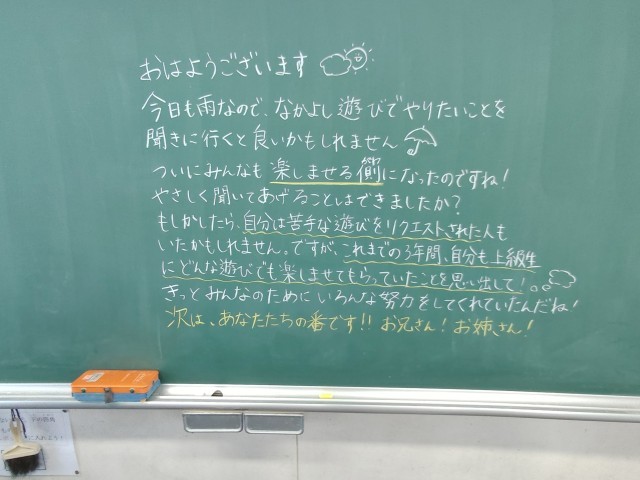 おはようございます
今日も雨なので、なかよし遊びでやりたいことを
聞きに行くと良いかもしれません
ついにみんなも楽しませる側になったのですね！
やさしく聞いてあげることはできましたか？
もしかしたら、自分は苦手な遊びをリクエストされた人も
いたかもしれません。ですが、これまでの3年間、自分も上級生
にどんな遊びでも楽しませてもらっていたことを思い出して！
きっとみんなのためにいろんな努力をしてくれていたんだね！
次は、あなたたちの番です!! お兄さん！お姉さん！